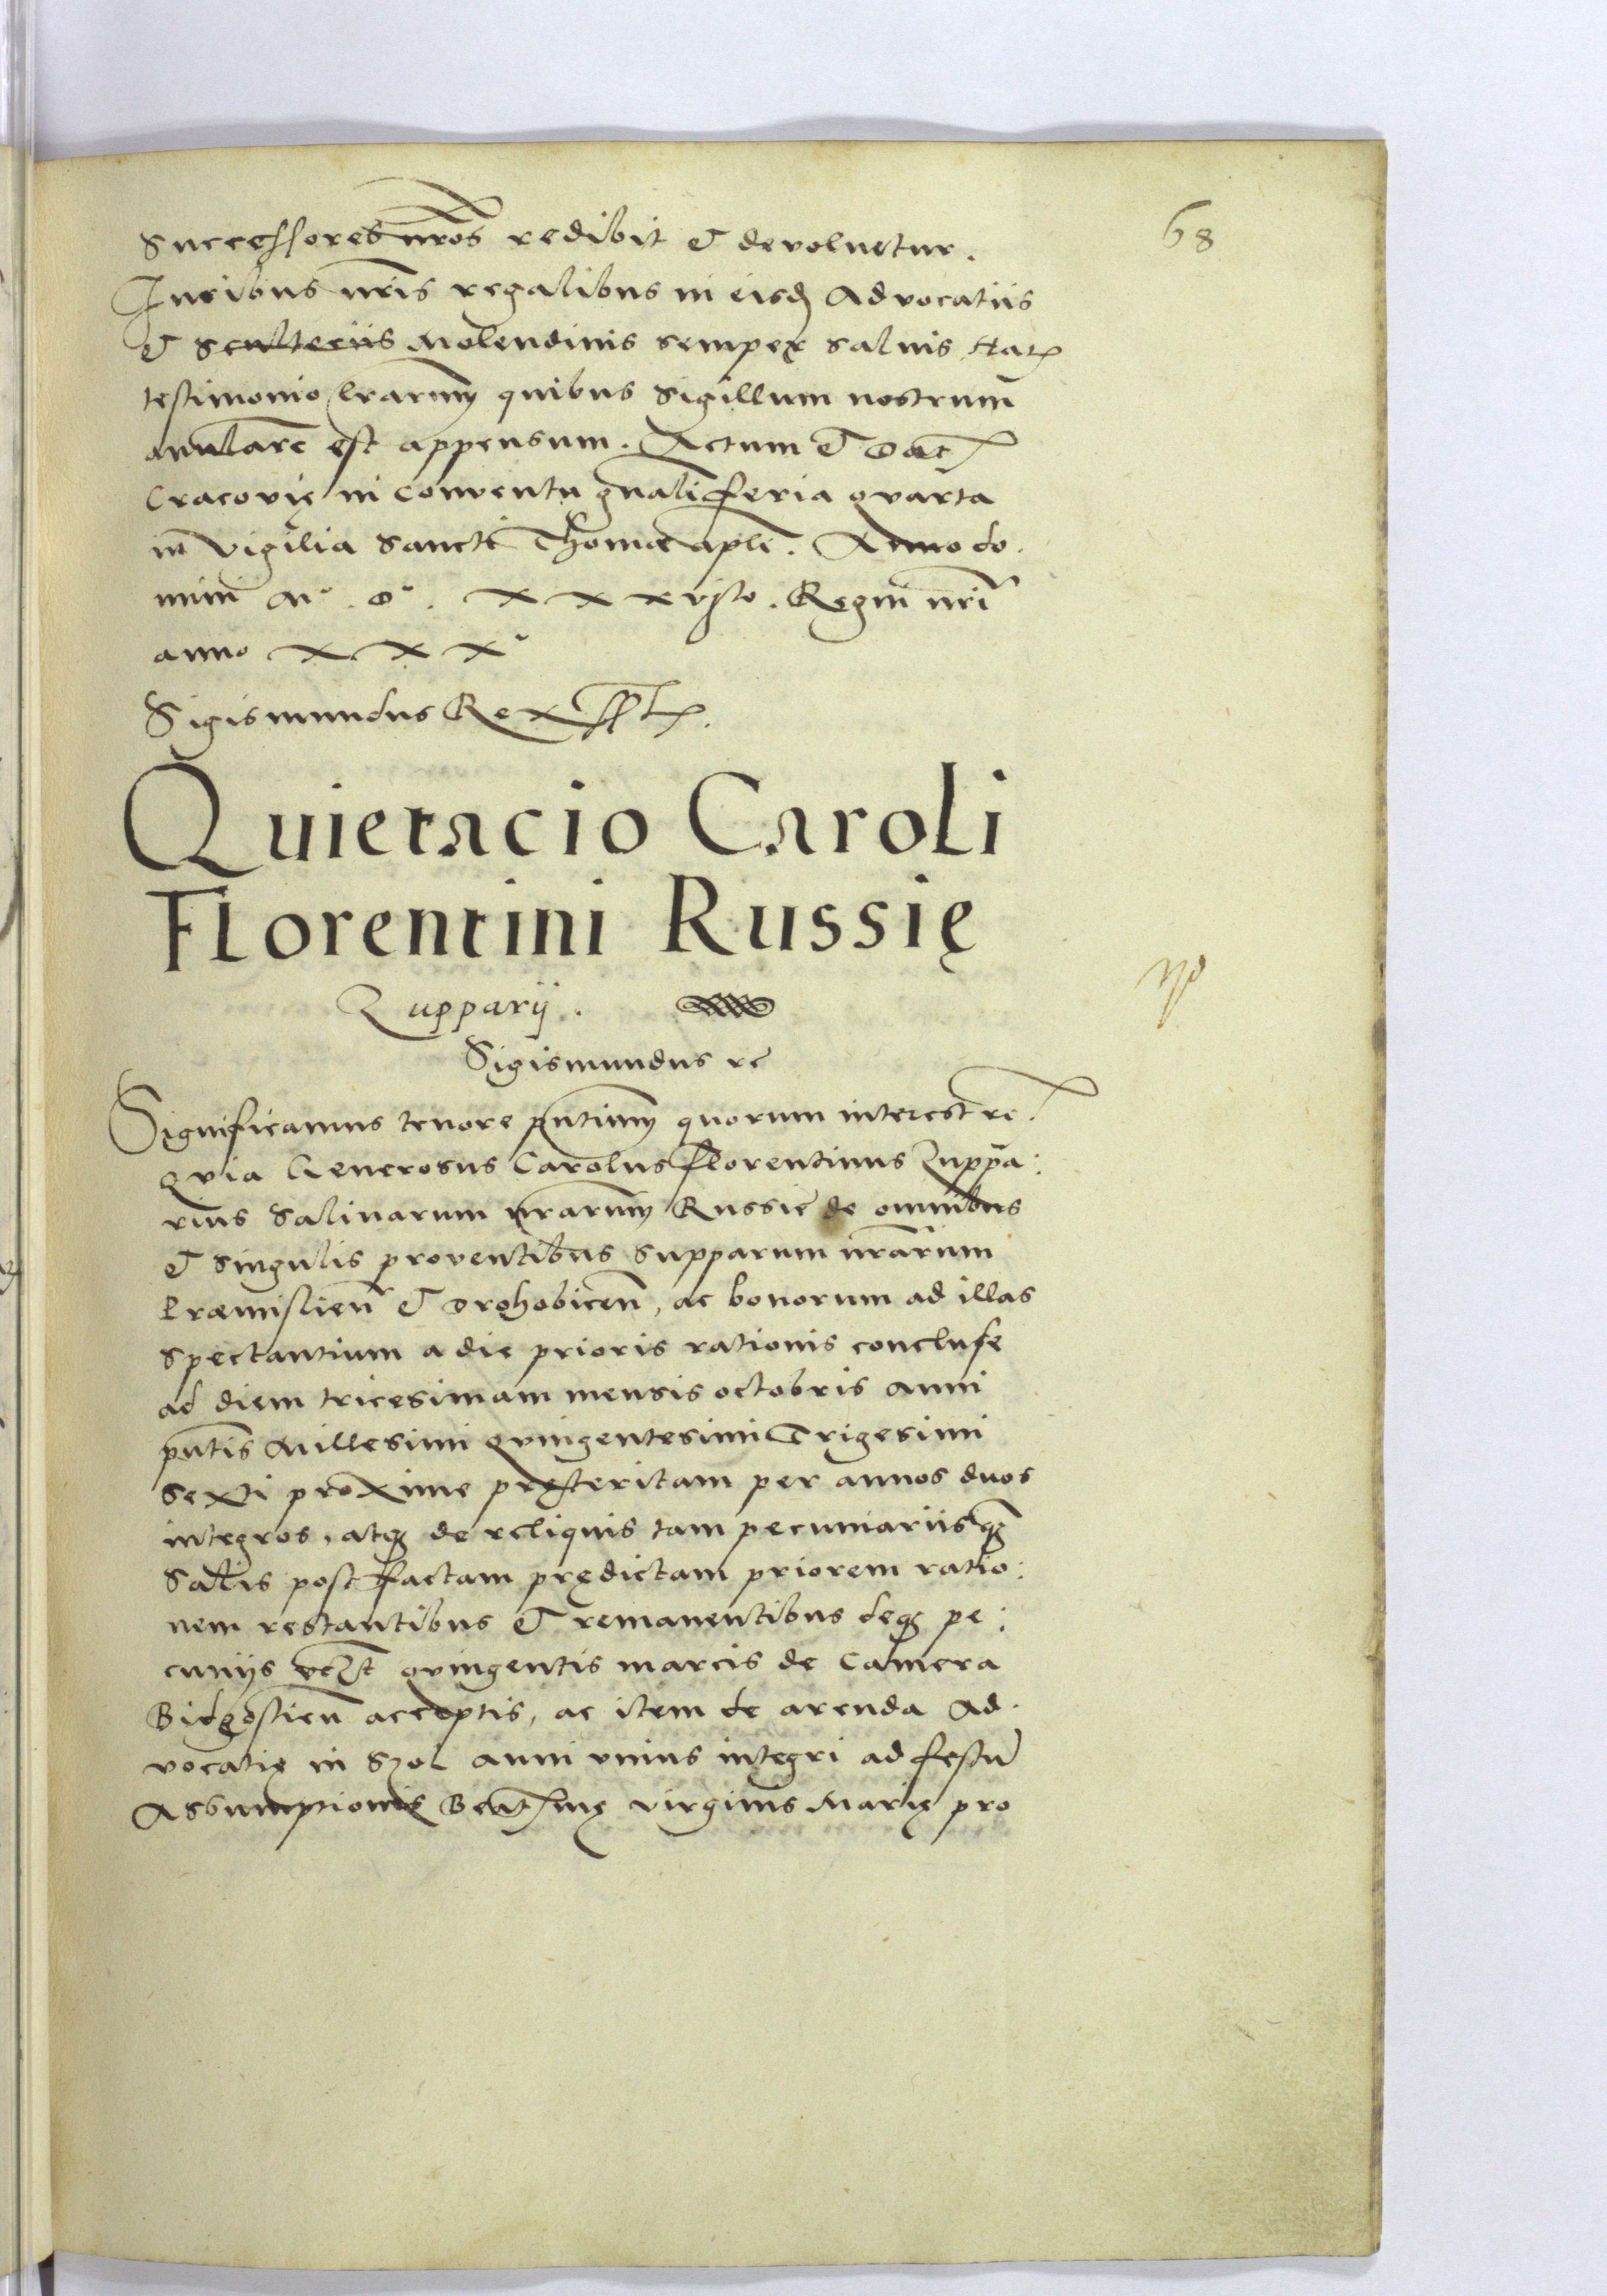 68
Successores nros redibit & devoluetur.
Iuribus nris regalibus in eisd Advocatiis
& Scultetiis Molendinis semper saluis Har
testimonio lrarum quibus Sigillum nostrum
anulare est appensum. Actum & Dat
Cracovię in conventu gnali feria quarta
in vigilia Sancti Thomae apli. Anno do.
mini M° D° xxxvjto. Regni nri
anno xxx°
Sigismundus Rex sspt.
Quietacio Caroli
Florentini Russię
Zupparij.
Sigismundus rc
Significamus tenore pntium quorum interest rc.
Quia Generosus Carolus Florentinus Zuppa:
rius Salinarum nrarum Russie de omnibus
& singulis proventibus Supparum nrarum
Praemislien & Drohobicen, ac bonorum ad illas
spectantium a die prioris rationis concluse
ad diem tricesimam mensis octobris anni
pntis Millesimi Quingentesimi Trigesimi
Sexti proxime pręteritam per annos duos
integros, atq de reliquis tam pecuniariis q
Salis post factam prędictam priorem ratio:
nem restantibus & remanentibus deq pe:
cuniis quingentis marcis de Camera
Bidgostien acceptis, ac item de arenda Ad.
vocatię in Szol anni unius integri ad festu
Assumptionis Beatmę virginis Marię pro